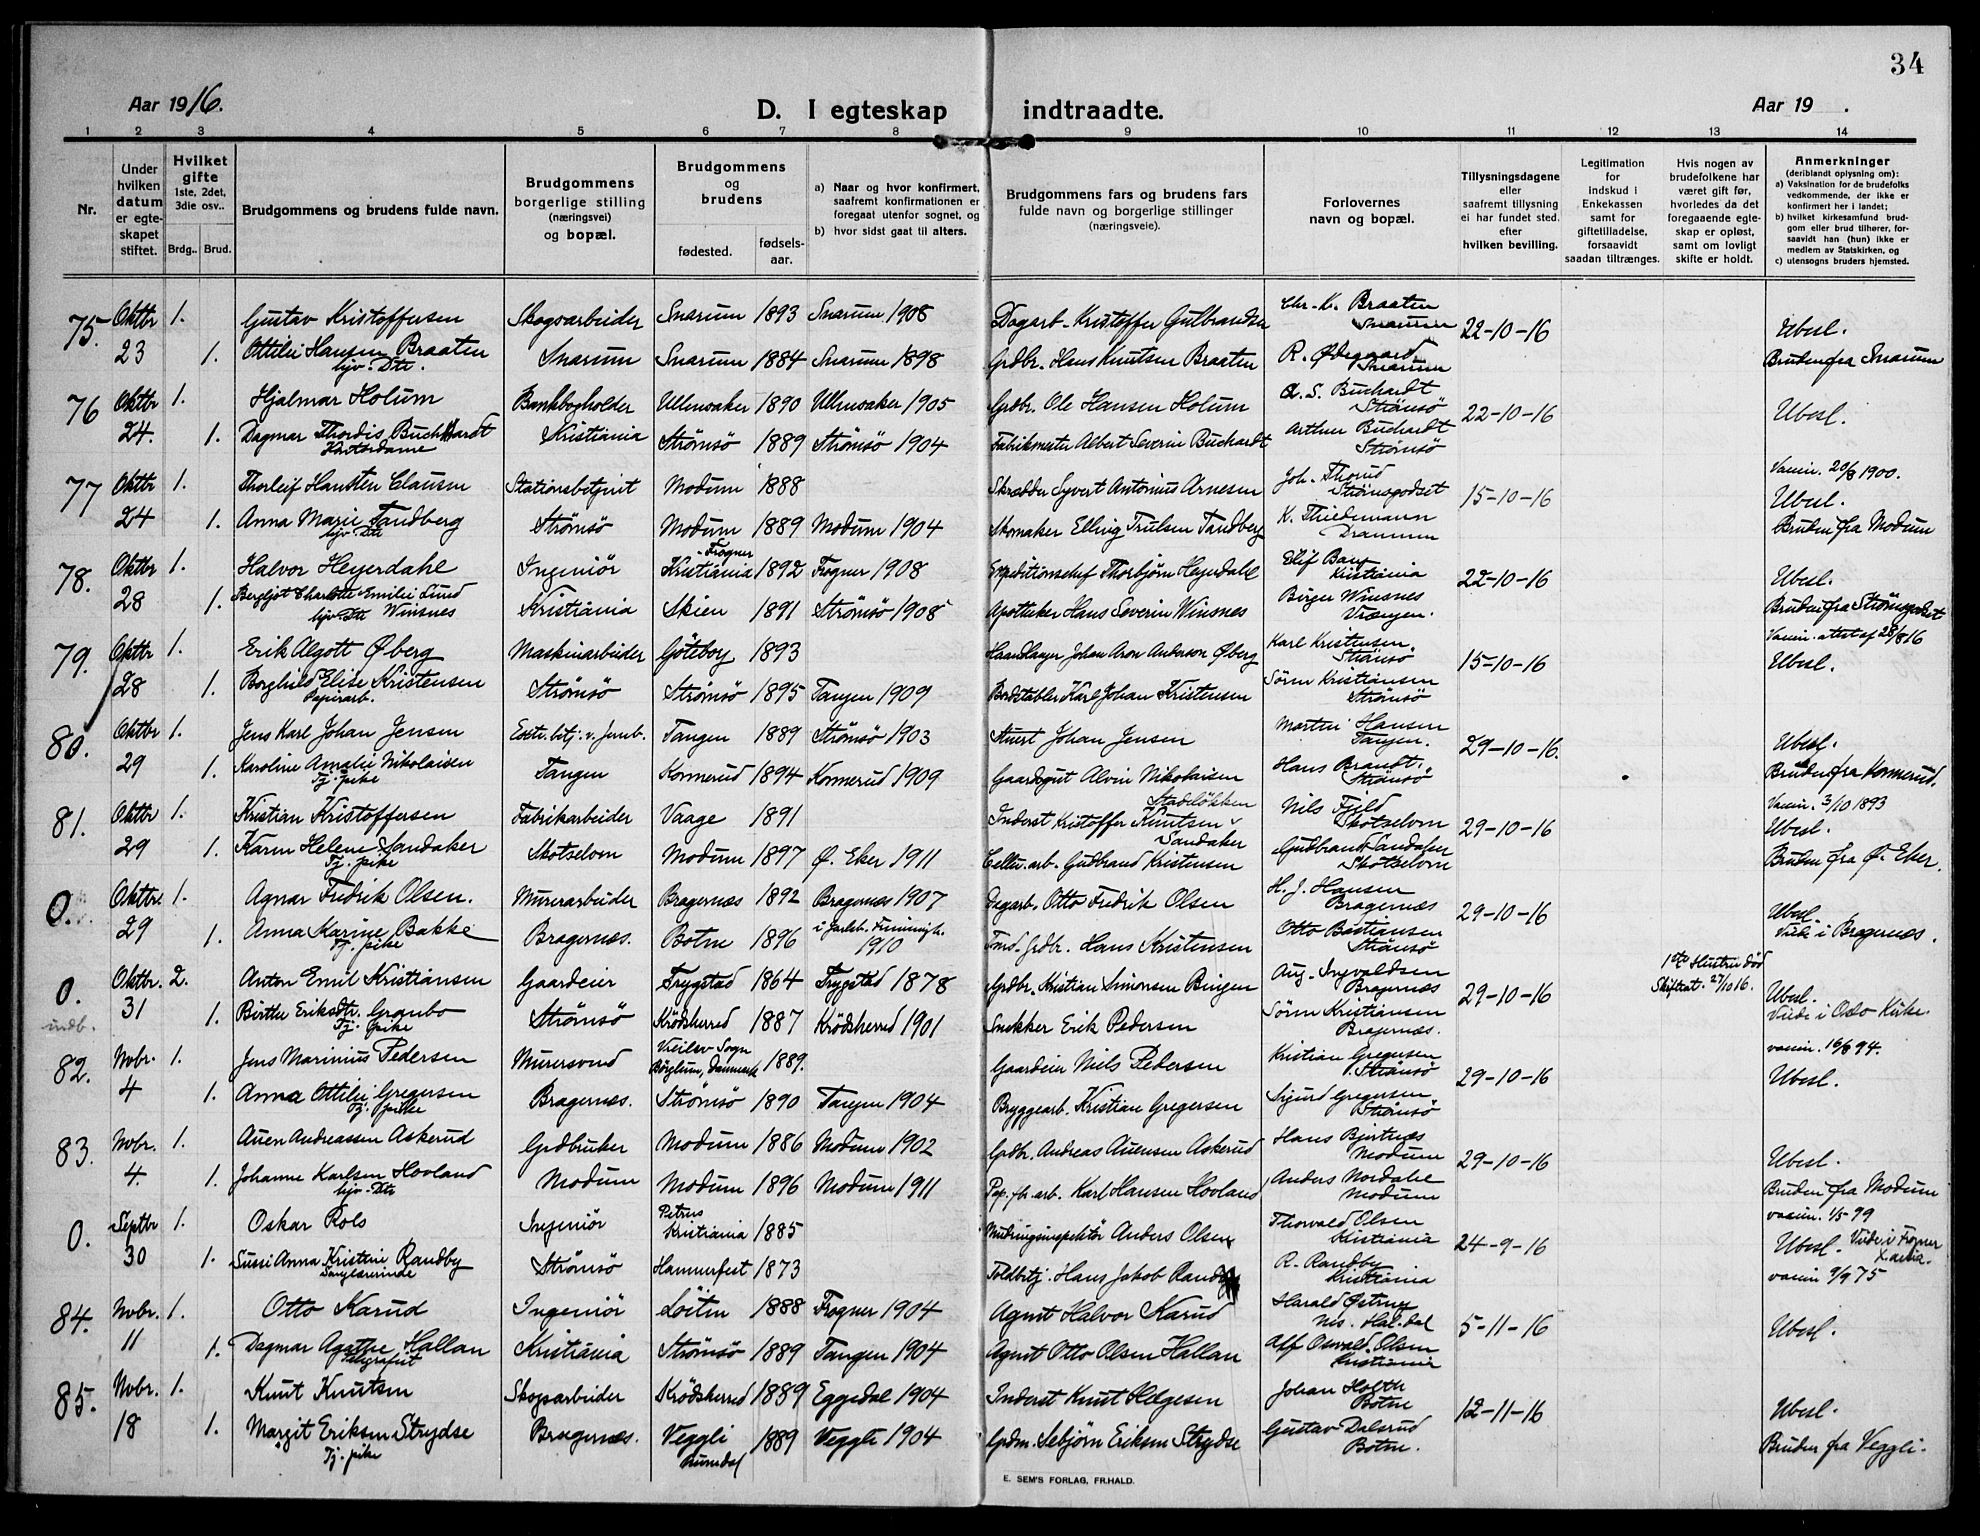 34
Aar 1916.
D. I egteskap indtraadte.
Aar 19 .
1 2 3 4 5 6 7 8 9 10 11 12 13 14
Nr.
Under hvilken datum er egteskapet stiftet.
Hvilket gifte 1ste, 2det, 3die osv..
Brdg.. Brud.
Brudgommens og brudens fulde navn.
Brudgommens borgerlige stilling (næringsvei) og bopæl.
Brudgommens og brudens
fødested. fødsels-aar.
a) Naar og hvor konfirmert, saafremt konfirmationen er foregaat utenfor sognet, og
b) hvor sidst gaat til alters.
Brudgommens fars og brudens fars fulde navn og borgerlige stillinger (næringsveie).
Forlovernes navn og bopæl.
Tillysningsdagene eller saafremt tillysning ei har fundet sted. efter hvilken bevilling.
Legitimation for indskud i Enkekassen samt for giftetilladelse, forsaavidt saadan tiltrænges.
Hvis nogen av brudefolkene har været gift før, hvorledes da det foregaaende egteskap er opløst, samt om lovligt skifte er holdt.
Anmerkninger (deriblandt oplysning om):
a) Vaksination for de brudefolks vedkommende, der ikke er konfirmert her i landet;
b) hvilket kirkesamfund brudgom eller brud tilhører, forsaavidt han (hun) ikke er medlem av Statskirken, og
c) utensogns bruders hjemsted.
75. Oktbr 1. Gustav Kristoffersen Skogsarbeider Snarum 1893 Snarum 1908 Dagarb. Kristoffer Gulbrandsen Chr. K. Braaten Snarum 22-10-16 Ubesl.
23 1. Ottilie Hansen Braaten hjv. Dtr. Snarum Snarum 1884 Snarum 1898 Grdbr. Hans Knutsen Braaten R. Ødegaard Snarum Bruden fra Snarum
76 Oktbr 1. Hjalmar Holum Bankbogholder Ullensaker 1890 Ullensaker 1905 Grdbr. Ole Hansen Holum A. S. Buchardt Strömsö 22-10-16 Ubesl.
24. 1. Dagmar Thordis Buchardt Kontordame Kristiania Strømsö 1889 Strømsö 1904 Fabrikmester Albert Severin Buchardt Arthur Buchardt Strømsö
77 Oktbr 1. Thorleif Hansten Clausen Stationsbetjent Modum 1888 Skrædder Syvert Antonius Arnesen Joh. Thorud Strömsgodset 15-10-16 Vaccin. 20/8 1900. Ubesl.
24 1. Anna Marie Tandberg hjv. Dtr Strømsö Modum 1889 Modum 1904 Skomaker Elling Trulsen Tandberg K. Thiedemann Drammen Bruden fra Modum
78. Oktbr 1. Halvor Heyerdahl Ingeniör Frogner Kristiania 1892 Frogner 1908 Expeditionschef Thorbjørn Heyerdahl Kristiania 22-10-16 Ubesl.
28 1. Bergljot Charlotte Emilie Lund Winsnes hjv. Dtr Kristiania Skien 1891 Strømsö 1908 Apotheker Hans Severin Winsnes Birger Winsnes Bruden fra Strömsgodset
79. Oktbr 1. Erik Algott Øberg Maskinarbeider Göteborg 1893 Johan Aron Anderson Øberg Karl Kristensen. Strömsö 15-10-16 Vaccin. attest af 28/8 16 Ubesl.
28 1. Borghild Elise Kristensen Papirarb. Strømsö Strømsö 1895 Tangen 1909 Bordstabler Karl Johan Kristensen Sörin Kristiansen Strömsö
80. Oktbr 1. Jens Karl Johan Jensen Extr. betj. v. Jernb. Tangen 1889 Strømsö 1903 Stuert Johan Jensen Martin Hansen Tangen. 29-10-16. Ubesl.
29 1. Karoline Amalie Nikolaisen Tj. pike Tangen Konnerud 1894 Konnerud 1909 Gaardsgut Alvin Nikolaisen Hans Brandt. Strömsö Bruden fra Konnerud.
81. Oktbr 1. Kristian Kristoffersen Fabrikarbeider Vaage 1891 Inderst Kristoffer Knutsen Stadeløkken Nils Fjeld Skotselven 29-10-16 Vaccin. 3/10 1893 Ubesl.
29 1. Karen Helene Sandaker Tj. pike Skotselven Modum 1897 Ø. Eker 1911 Cellu. arb. Gudbrand Kristensen Sandaker Gudbrand Sandaker Skotselven Bruden fra Ø. Eker.
0. Oktbr. 1. Agnar Fredrik Olsen. Murerarbeider Bragernæs 1892 Bragernæs 1907 Dagarb. Otto Fredrik Olsen H. J. Hansen Bragernæs 29-10-16 Ubesl.
29 1. Anna Karine Bakke Tj. pike Bragernæs. Botne 1896 i Jarlsb. 1910 Grdbr. Hans Kristensen Otto Bastiansen Strömsö Viede i Bragernæs.
0. indb. Oktbr. 2. Anton Emil Kristiansen Gaardeier Trygstad 1864 Trygstad 1878 Grdbr. Kristian Simonsen Bingen Aug. Ingvaldsen Bragernæs 29-10-16 1ste Hustru död Skifteat. 27/10 16. Ubesl.
31 1. Birthe Eriksdtr. Granbo Tj. pike Strømsö Krödsherred 1887 Krödsherred 1901 Snekker Erik Pedersen Sörin Kristiansen Bragernæs. Viede i Oslo Kirke.
82. Novbr. 1. Jens Marinius Pedersen Murersvend Vreilev Sogn Börglum, Danmark 1889. Gaardeier Niels Pedersen Kristian Gregersen Strömsö 29-10-16 vaccin. 16/8 94. Ubesl.
4 1. Anna Ottilie Gregersen Tj. pike Bragernæs. Strømsö 1890 Tangen 1904 Bryggearb. Kristian Gregersen Sigurd Gregersen Strömsö
83. Novbr. 1. Auen Andreassen Askerud Grdbruker Modum 1886 Modum 1902 Grdbr. Andreas Auensen Askerud Hans Bjertnæs Modum 29-10-16 Ubesl.
4. 1. Johanne Karlsen Hovland hjv. Dtr Modum Modum 1896 Modum 1911 Pap. fb. arb. Karl Hansen Hovland Anders Nordahl Modum Bruden fra Modum
0. Septbr 1. Oskar Rols Ingeniör Petrus Kristiania 1885 Anders Olsen Thorvald Olsen Kristiania 24-9-16 vaccin. 1/5 99 Ubesl. Viede i Frogner
30 1. Sussi Anna Kristine Randby Sanglærerinde Strømsö Hammerfest 1873 Toldbetj. Hans Jakob Randby R. Randby Kristiania vaccin 9/9 75
84. Novbr. 1. Otto Karud Ingeniör Löiten 1888 Frogner 1904 Agent Halvor Karud Harald Østrup 5-11-16 Ubesl.
11 1. Dagmar Agathe Hallan Telegrafist Kristiania Strømsö 1889 Tangen 1904 Agent Otto Olsen Hallan Alf Oswald Olsen Kristiania
85. Novbr. 1. Knut Knutsen Skogsarbeider Krödsherred 1889 Eggedal 1904 Inderst Knut Helgesen Johan Holth Botne 12-11-16 Ubesl.
18 1. Margit Eriksen Strydse Tj. pike Bragernæs. Veggli Numedal 1889 Veggli 1904 Grdm. Sebjörn Eriksen Strydse Gustav Dalsrud Botne. Bruden fra Veggli.
E. SEM'S FORLAG, FR.HALD.